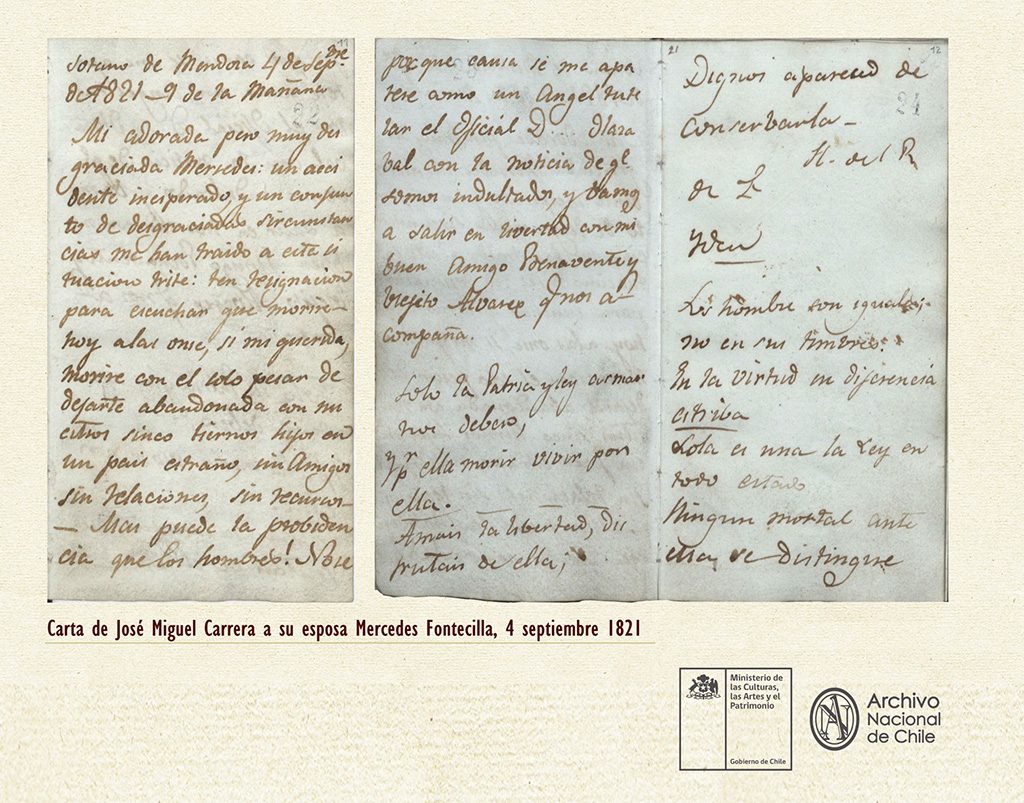 11
Sotano de Mendosa 4 de Sepre.
de 1821_9 de la Mañana
22
Mi adorada pero muy des
graciada Mersedes: un acci
dente inesperado, y un conjun
to de desgraciadas sircunstan
cias me han traido a esta si
tuacion triste: ten resignacion
para escuchar que morire
hoy alas onse, si mi querida,
morire con el solo pesar de
dejarte abandonada con nu
estros sinco tiernos hijos en
un pais estraño, sin Amigos
sin relaciones, sin recursos_
_ Mas puede la probiden
cia que los hombres! No se
por que causa se me apa
rese como un Angel tute
lar el Oficial D... Olaza
bal con la noticia de ql.
somos indultados, y vamos
a salir en livertad con mi
buen Amigo Benavente y
viejito Alvarez q. nos a-
compaña.
Solo la Patria y ley a amar
nos debeis,
y pr. ella morir vivir por
ella.
Amais la libertad, dis
frutais de ella;
21
12
Dignos apareced de
24
Conserbarla_
H. del R
de L
Yden
Los hombre son iguales;
no en sus timbres:
En la virtud su diferencia
estriba
Sola es una la Ley en
todo estado
Ningun mortal ante
ella, se distingue
Carta de José Miguel Carrera a su esposa Mercedes Fontecilla, 4 septiembre 1821
Ministerio de
las Culturas,
las Artes y el
Patrimonio
Gobierno de Chile
AN
Archivo
Nacional
de Chile